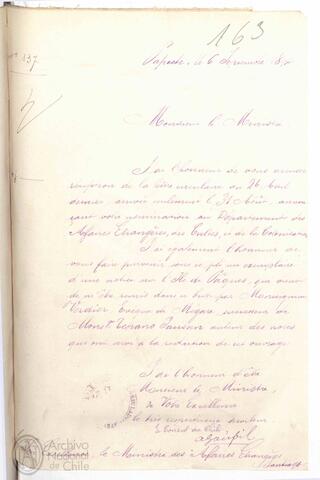 163
137
Papeete, le 6 Novembre 18
Monsieur le Ministre
J'ai l'honneur de vous
réception de la circulaire du 26
dernier, 31 Août,
çant votre nomination au Département des
Affaires Etrangères, des Cultes, et de la Colonisation
J'ai également l'honneur de
vous faire parvenir sous ce pli un exemplaire
d'une notice sur l'Ile de Pâques, qui vient
de m'être remis dans ce but par Monseigneur
Verdier Evêque de Mégare, successeur de
Monsr Tepano Jaussen auteur des notes
qui ont servi à la rédaction de cet ouvrage.
J'ai l'honneur d'être
Monsieur le Ministre,
de Votre Excellence
le très respectueux serviteur
le Consul du Chili
le Ministre des Affaires Etrangères
Santiago
Archivo
Nacional
de Chile